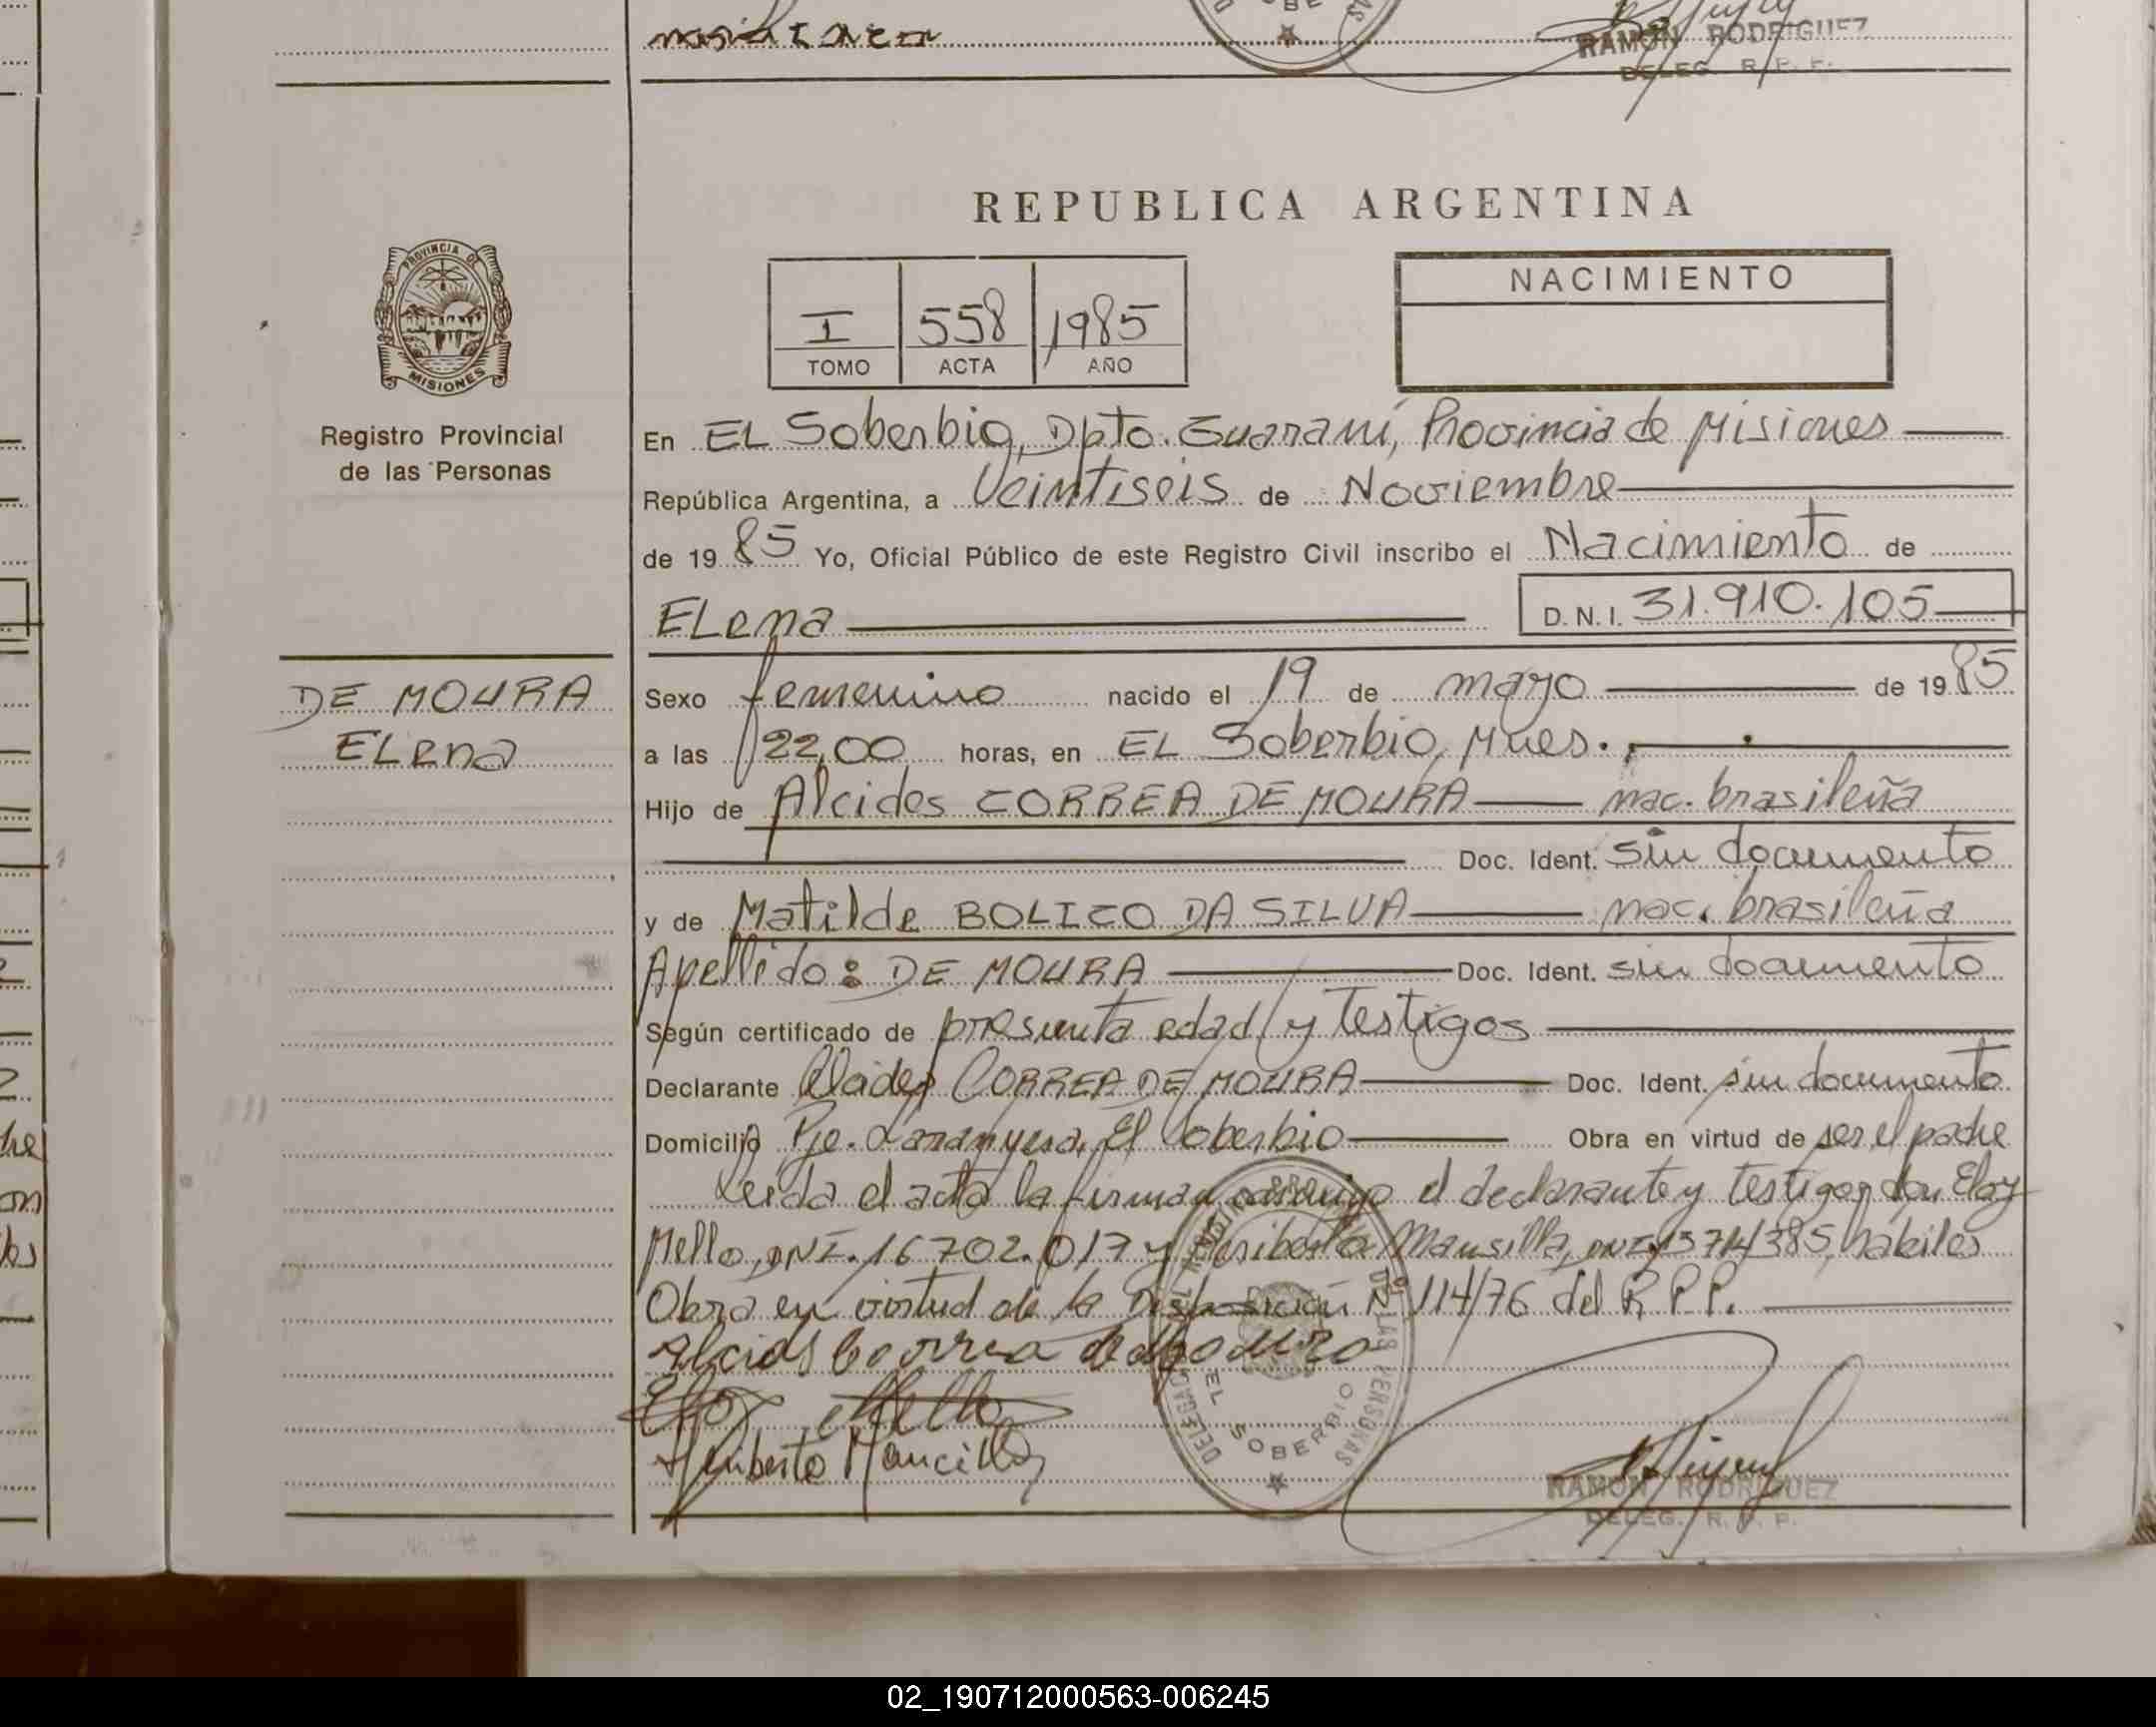 RAMON RODRIGUEZ
DELEG. R. P. P.
REPUBLICA ARGENTINA
PROVINCIA DE
MISIONES
Registro Provincial
de las Personas
I 558 1985
TOMO ACTA AÑO
NACIMIENTO
En EL Soberbio, Dpto. Guaraní, Provincia de Misiones
República Argentina, a Veintiseis de Noviembre
de 1985 Yo, Oficial Público de este Registro Civil inscribo el Nacimiento de
ELena D.N.I. 31.910.105
DE MOURA
ELena
Sexo femenino nacido el 19 de mayo de 1985
a las 22,00 horas, en EL Soberbio, Mnes.
Hijo de Alcides CORREA DE MOURA nac. brasileña
Doc. Ident. sin documento
y de Matilde BOLICO DA SILVA nac. brasileña
Apellido: DE MOURA Doc. Ident. sin documento
Según certificado de presunta edad y testigos
Declarante Alcides CORREA DE MOURA Doc. Ident. sin documento
Domicilio Pje. El Soberbio Obra en virtud de ser el padre
Leida el acta la firman conmigo el declarante y testigos don Eloy
Mello, DNI. 16702.017 y Heriberto Mansilla, DNI. 13714385, hábiles
Obra en virtud de la Disposición Nº 114/76 del R.P.P.
Alcids Correa de Moura
Eloy Mello
Heriberto Mancilla
EL SOBERBIO
RAMON RODRIGUEZ
DELEG. R. P. P.
02_190712000563-006245